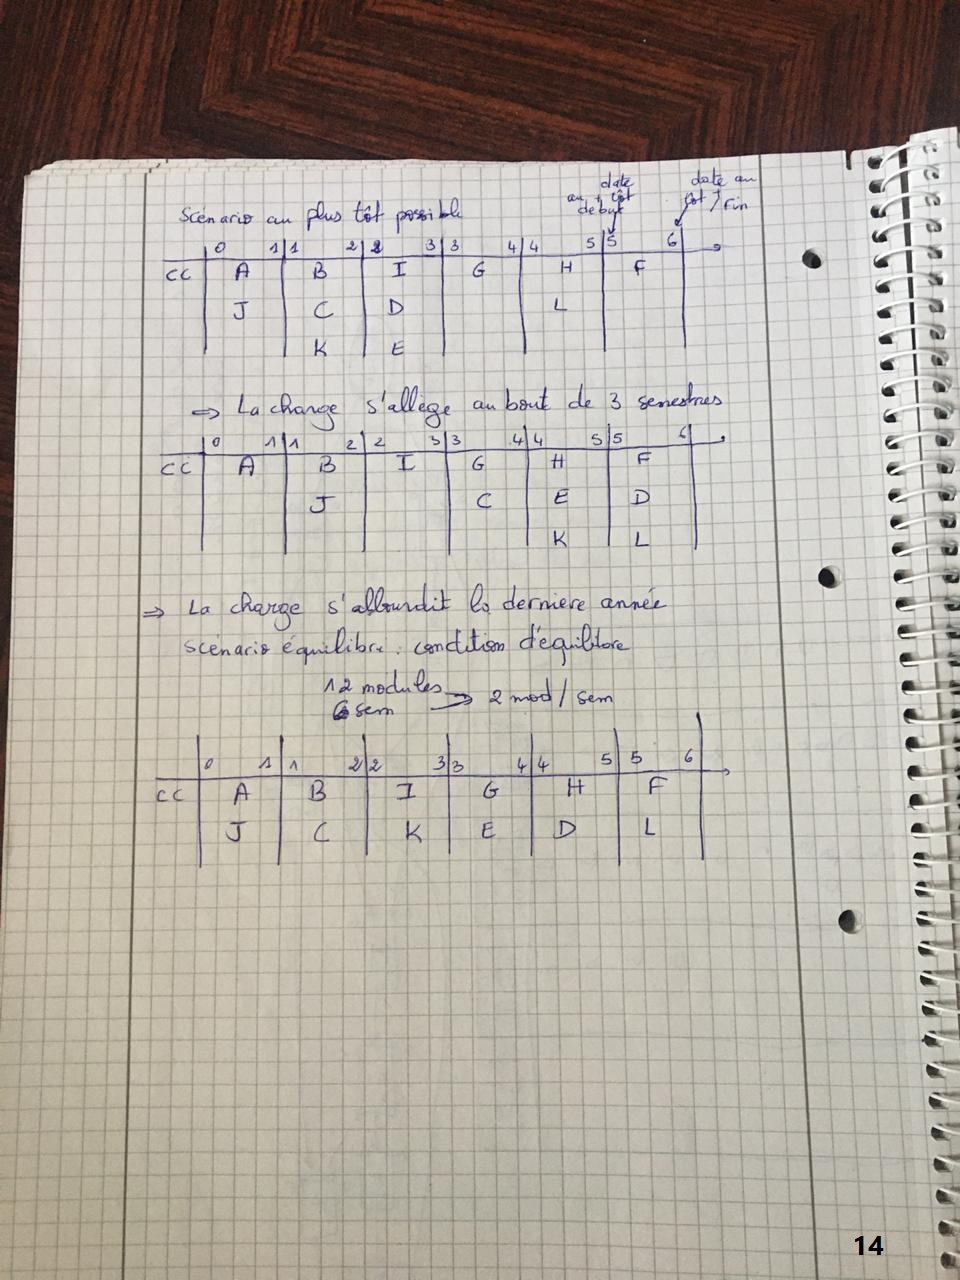 Scénario au plus tôt possible
date
au + tôt
début
date au
+ tôt fin
0 1 1 2 2 3 3 4 4 5 5 6
CC A B I G H F
J C D L
K E
⇒ La charge s'allège au bout de 3 semestres
0 1 1 2 2 3 3 4 4 5 5 6
CC A B I G H F
J C E D
K L
⇒ La charge s'allourdit la derniere année
scénario équilibre : condition d'équilibre
12 modules
6 sem → 2 mod / sem
0 1 1 2 2 3 3 4 4 5 5 6
CC A B I G H F
J C K E D L
14